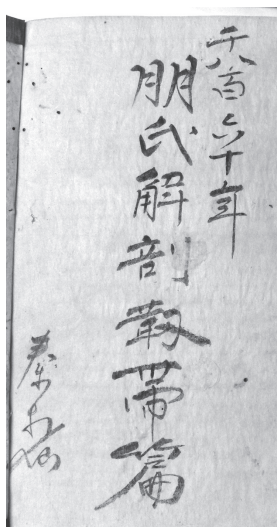 千八百六十年
朋氏解剖靱帯篇